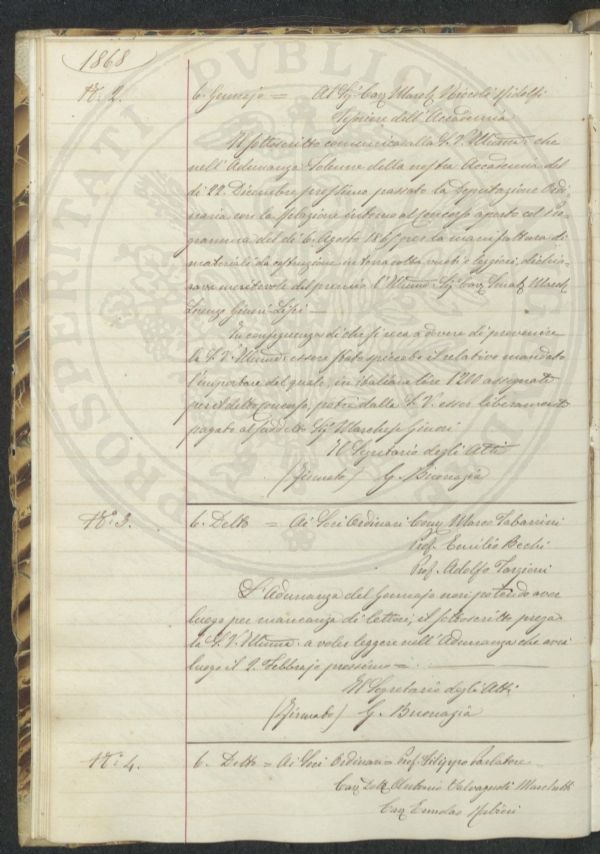 1868
N.º 2.
6. Gennajo = Al Sig.r Cav. March. Niccolò Ridolfi
Tesoriere dell'Accademia
Il sottoscritto comunica alla S. V. Illma che
nell'Adunanza Solenne della nostra Accademia del
dì 22. Dicembre prossimo passato la Deputazione Ordi-
naria con la Relazione intorno al Concorso aperto col Pro-
gramma del dì 6. Agosto 1865 per la manifattura di
materiali da costruzione in terra cotta vuoti e leggieri, dichia-
rava meritevole del premio l'Illmo Sig. Cav. Senat. March.
Lorenzo Ginori-Lisci =
In conseguenza di che si reca a dovere di prevenire
la S. V. Illma essere stato spiccato il relativo mandato
l'importare del quale, in italiane lire 1200 assegnate
per il detto concorso, potrà dalla S. V. esser liberamente
pagato al suddetto Sig. Marchese Ginori
Il Segretario degli Atti
(Firmato) G. Buonazia
N.º 3.
6. Detto = Ai Soci Ordinari Comm. Marco Tabarrini
Prof. Emilio Bechi
Prof. Adolfo Targioni
L'Adunanza del Gennajo non potendo aver
luogo per mancanza di lettori, il sottoscritto prega
la S. V. Illma a voler leggere nell'Adunanza che avrà
luogo il 2. Febbrajo prossimo =
Il Segretario degli Atti
(Firmato) G. Buonazia
N.º 4.
6. Detto = Ai Soci Ordinari = Prof. Filippo Parlatore
Cav. Dott. Antonio Salvagnoli Marchetti
Cav.
PROSPERITATI PUBLICAE